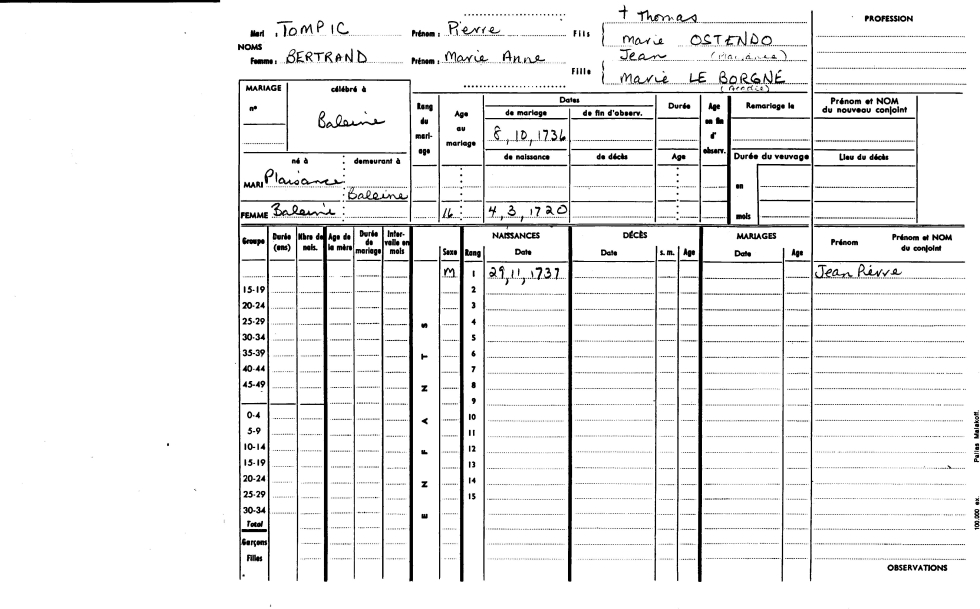 † Thomas
PROFESSION
Mari : TOMPIC Prénom : Pierre Fils { Marie OSTENDO
NOMS
Femme : BERTRAND Prénom : Marie Anne Jean
Fille { Marie LE BORGNE
(Acadie)
MARIAGE célébré à
n° Baleine
Rang du mari-age
Age au mariage
Dates
de mariage de fin d'observ.
8, 10, 1736
de naissance de décès
Durée
Age
Age en fin d' observ.
Remariage le
Durée du veuvage
en
mois
Prénom et NOM du nouveau conjoint
Lieu du décès
né à demeurant à
MARI Plaisance Baleine
FEMME Baleine 16 4, 3, 1720
Groupe Durée (ans) Nbre de nais. Age de la mère Durée de mariage Inter-valle en mois
E N F A N T S
NAISSANCES DÉCÈS MARIAGES
Sexe Rang Date Date s. m. Age Date Age Prénom Prénom et NOM du conjoint
M 1 29, 11, 1737 Jean Pierre
15-19 2
20-24 3
25-29 4
30-34 5
35-39 6
40-44 7
45-49 8
9
0-4 10
5-9 11
10-14 12
15-19 13
20-24 14
25-29 15
30-34
Total
Garçons
Filles
OBSERVATIONS
100.000 ex. Pallas Malakoff.